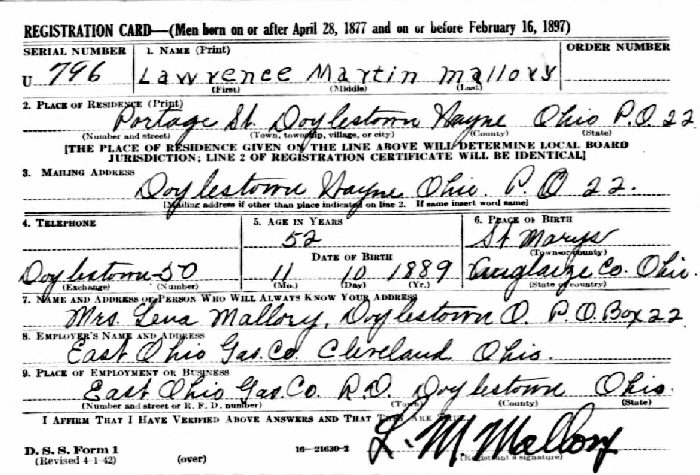 REGISTRATION CARD—(Men born on or after April 28, 1877 and on or before February 16, 1897)
SERIAL NUMBER 1. NAME (Print) ORDER NUMBER
U 796 Lawrence Martin Mallory
(First) (Middle) (Last)
2. PLACE OF RESIDENCE (Print)
Portage St. Doylestown Wayne Ohio P.O. 22
(Number and street) (Town, township, village, or city) (County) (State)
[THE PLACE OF RESIDENCE GIVEN ON THE LINE ABOVE WILL DETERMINE LOCAL BOARD
JURISDICTION; LINE 2 OF REGISTRATION CERTIFICATE WILL BE IDENTICAL]
3. MAILING ADDRESS
Doylestown Wayne Ohio. P.O 22.
[Mailing address if other than place indicated on line 2. If same insert word same]
4. TELEPHONE 5. AGE IN YEARS 6. PLACE OF BIRTH
52 St Marys
DATE OF BIRTH (Town or county)
Doylestown-50 11 10 1889 Auglaize Co. Ohio.
(Exchange) (Number) (Mo.) (Day) (Yr.) (State or country)
7. NAME AND ADDRESS OF PERSON WHO WILL ALWAYS KNOW YOUR ADDRESS
Mrs. Lena Mallory, Doylestown O. P.O. Box 22
8. EMPLOYER'S NAME AND ADDRESS
East Ohio Gas. Co. Cleveland Ohio.
9. PLACE OF EMPLOYMENT OR BUSINESS
East Ohio Gas. Co. R.D. Doylestown Ohio.
(Number and street or R. F. D. number) (Town) (County) (State)
I AFFIRM THAT I HAVE VERIFIED ABOVE ANSWERS AND THAT THEY ARE TRUE.
L. M. Mallory
D. S. S. Form 1 16—21630-2 (Registrant's signature)
(Revised 4-1-42) (over)